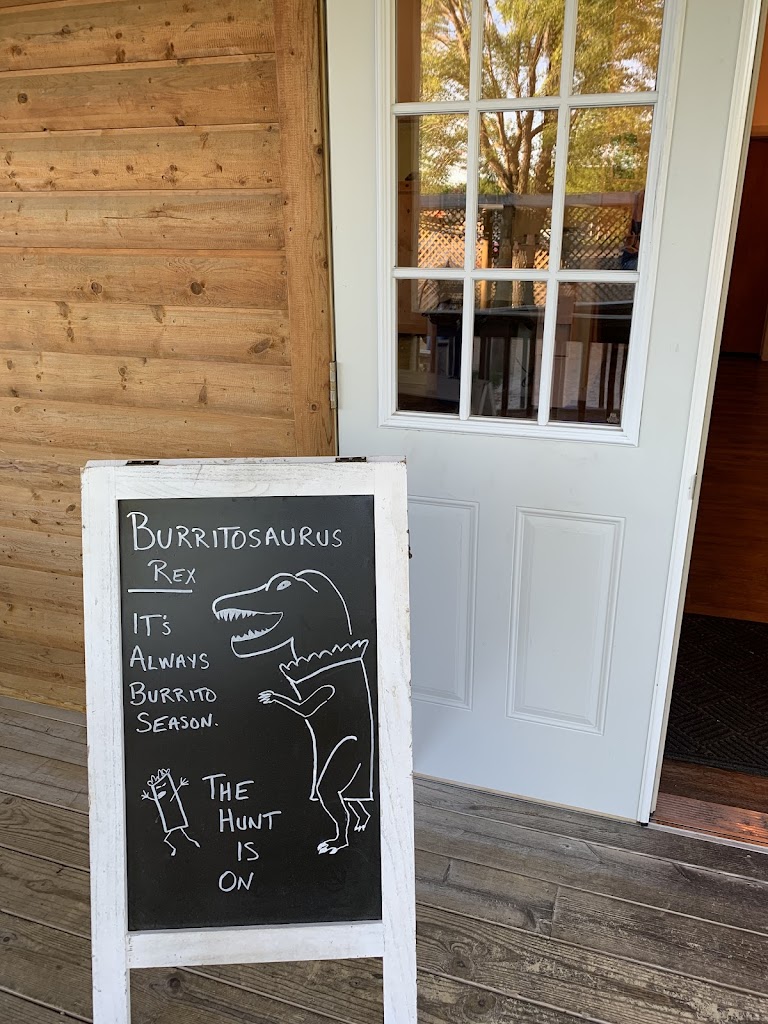 BURRITOSAURUS
REX
IT'S
ALWAYS
BURRITO
SEASON.
THE
HUNT
IS
ON